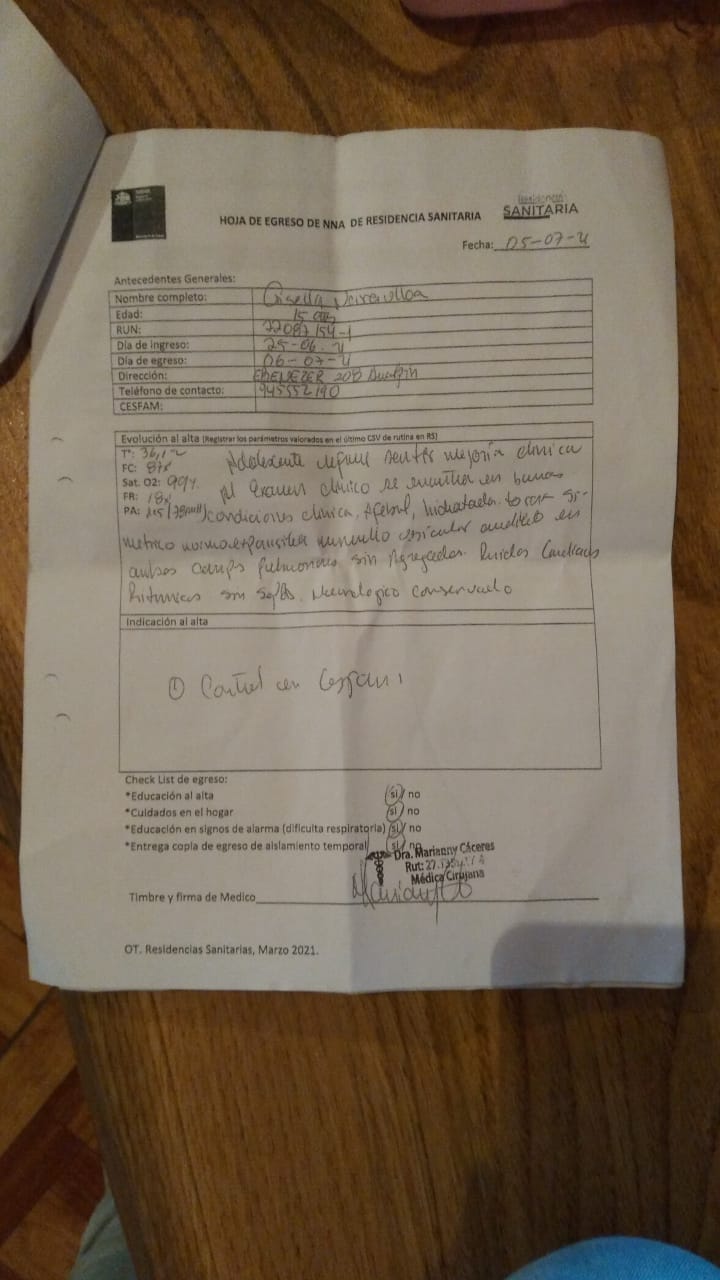 HOJA DE EGRESO DE NNA DE RESIDENCIA SANITARIA
Residencia
SANITARIA
Fecha: 05-07-21
Antecedentes Generales:
Nombre completo: Gisella
Edad: 15 años
RUN: 22087154-1
Día de ingreso: 25-06-21
Día de egreso: 06-07-21
Dirección: EBENEZER 208
Teléfono de contacto: 945552190
CESFAM:
Evolución al alta (Registrar los parámetros valorados en el último CSV de rutina en RS)
T°: 36,1 °C
FC: 87x
Sat. O2:
FR: 18x
PA:
Adolescente refiere sentir mejoría clínica
Al Examen clínico se encuentra en buenas
condiciones clínica, Afebril, hidratada. torax si-
metrico normoexpansible murmullo vesicular audible en
ambos campos pulmonares sin Agregados. Ruidos Cardiacos
Ritmicos sin soplos. Neurologico conservado
Indicación al alta
① Control en Cesfam
Check List de egreso:
*Educación al alta si / no
*Cuidados en el hogar si / no
*Educación en signos de alarma (dificulta respiratoria) si / no
*Entrega copia de egreso de aislamiento temporal si / no
Dra. Marianny Cáceres
Rut:
Médica Cirujana
Timbre y firma de Medico
OT. Residencias Sanitarias, Marzo 2021.